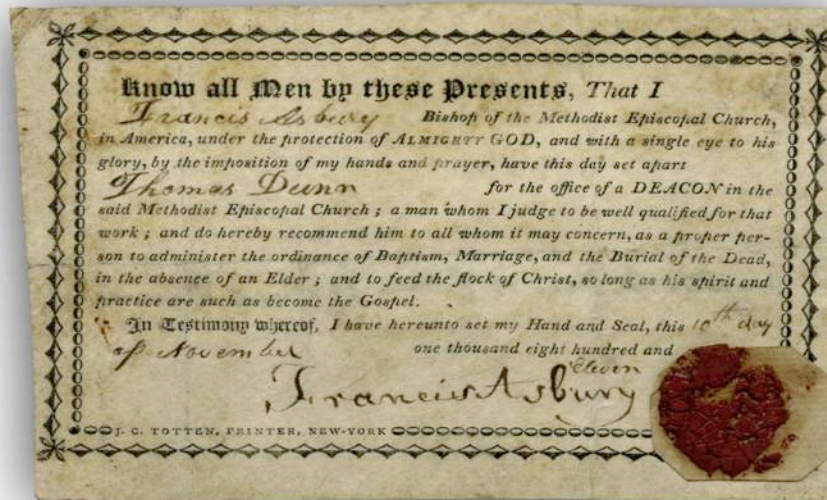 Know all Men by these Presents, That I
Francis Asbury Bishop of the Methodist Episcopal Church,
in America, under the protection of ALMIGHTY GOD, and with a single eye to his
glory, by the imposition of my hands and prayer, have this day set apart
Thomas Dunn for the office of a DEACON in the
said Methodist Episcopal Church ; a man whom I judge to be well qualified for that
work ; and do hereby recommend him to all whom it may concern, as a proper per-
son to administer the ordinance of Baptism, Marriage, and the Burial of the Dead,
in the absence of an Elder ; and to feed the flock of Christ, so long as his spirit and
practice are such as become the Gospel.
In Testimony whereof, I have hereunto set my Hand and Seal, this 10th day
of November one thousand eight hundred and
Eleven
Francis Asbury
J. C. TOTTEN, PRINTER, NEW-YORK